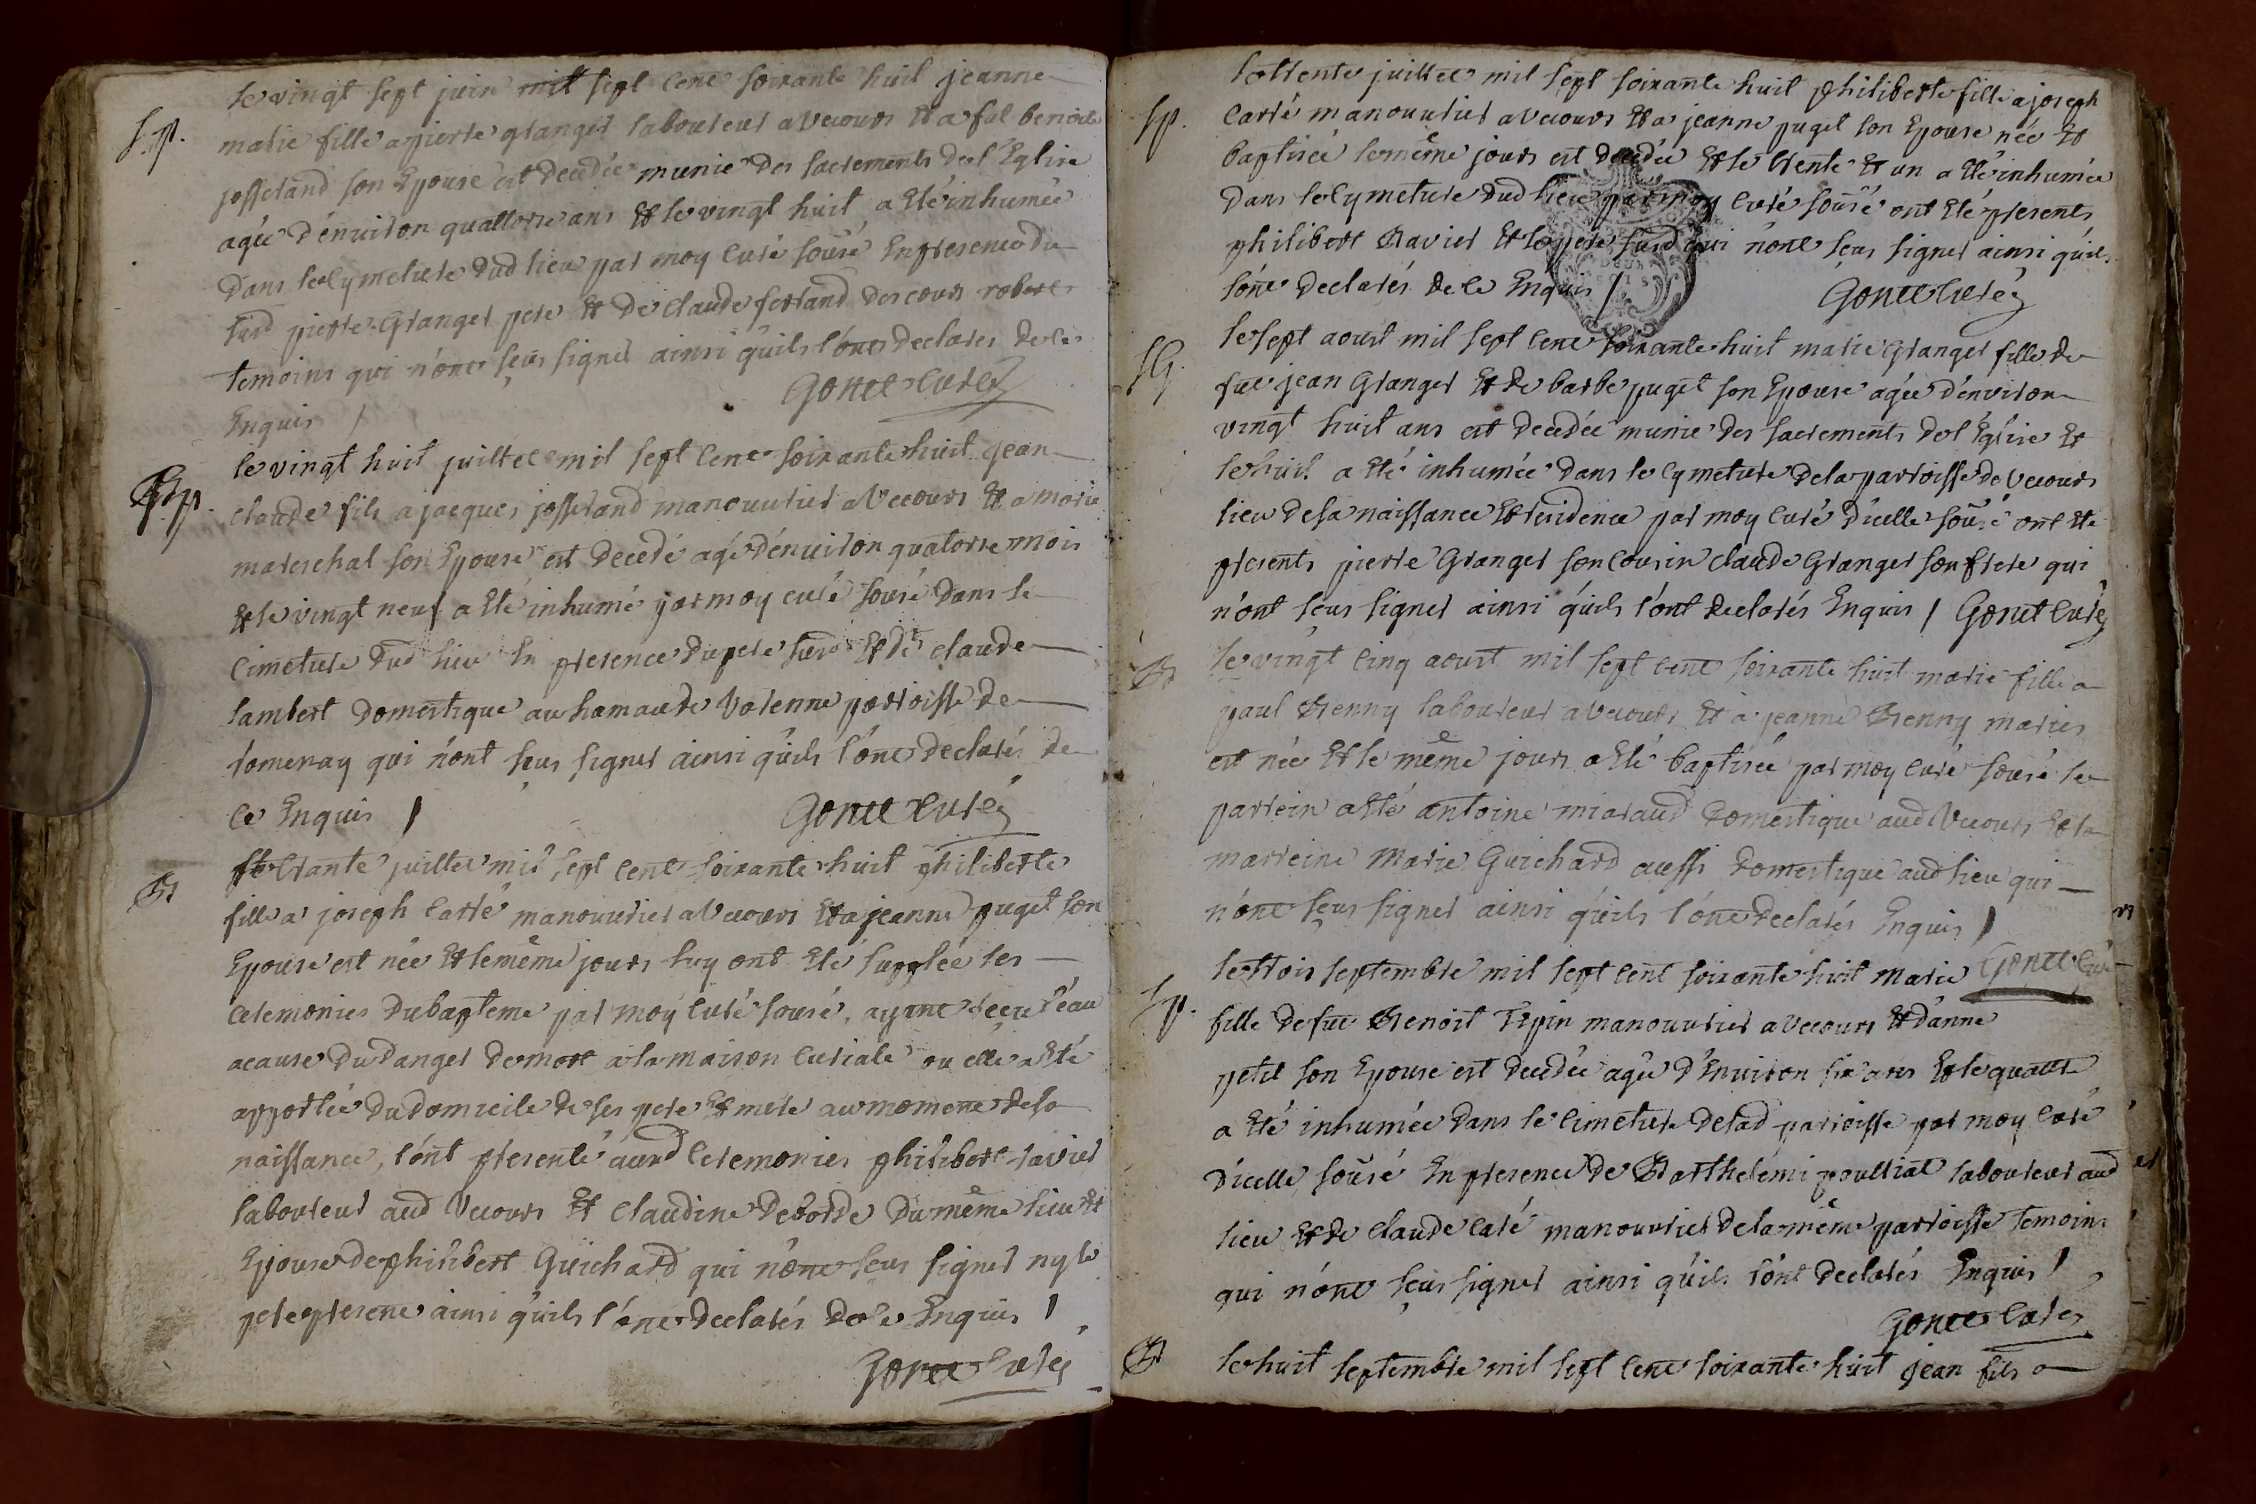 le vingt sept juin mil sept cent soixante huit jeanne
S. p.
marie fille a pierre granger laboureur a Vecours et a fut benoite
josserand son Epouse est decedée munie des sacrements de l'Eglise
agée d'environ quattorse ans et le vingt huit a Eté inhumée
dans le cymetiere dud lieu par moy curé sousé En presence du
susd pierre Granger pere et de claude ferrand des cours
temoins qui n'ont sçus signer ainsi qu'ils l'ont declarés de ce
Enquis / Gonet curé
le vingt huit juillet mil sept cent soixante huit jean
S. p.
claude fils a jacques josserand manouvrier a Vecours et a marie
mareschal son Epouse est decedé agé d'environ quatorse mois
et le vingt neuf a Eté inhumé par moy curé sousé dans le
cimetiere dud lieu En presence du pere susd et de claude
lambert domestique au hamau de Varenne parroisse de
romenay qui n'ont sçus signer ainsi qu'ils l'ont declarés de
ce Enquis / Gonet curé
le trante juillet mil sept cent soixante huit philiberte
Bt
fille a joseph carré manouvrier a Vecours et a jeanne puget son
Epouse est née et le même jours luy ont Eté supplée les
ceremonies du bapteme par moy curé sousé, ayant reçeu l'eau
a cause du danger de mort a la maison curiale ou elle a Eté
apportée du domicile de ses pere et mere au moment de sa
naissance, l'ont presenté aud ceremonies philibert ravier
laboureur aud Vecours et claudine deborde du même lieu et
Epouse de philibert Guichard qui n'ont sçus signer ny le
pere present ainsi qu'ils l'ont declarés de ce Enquis /
Gonet curé
le trente juillet mil sept soixante huit philiberte fille a joseph
Sp.
carré manouvrier a Vecours et a jeanne puget son Epouse née et
baptisée le même jours est decedée et le trente et un a Eté inhumée
dans le cymetiere dud lieu par moy curé sousé ont Eté presents
philibert Ravier et le pere susd qui n'ont sçus signer ainsi qu'ils
l'ont declarés de ce Enquis / Gonet curé
le sept aoust mil sept cent soixante huit marie Granger fille de
SG.
fut jean Granger et de barbe puget son Epouse agée d'environ
vingt huit ans est decedée munie des sacrements de l'Eglise et
le huit a Eté inhumée dans le cymetiere de la parroisse de Vecours
lieu de sa naissance et residence par moy curé d'icelle sousé ont Eté
presents pierre Granger son cousin claude Granger son frere qui
n'ont sçus signer ainsi qu'ils l'ont declarés Enquis / Gonet curé
le vingt cinq aoust mil sept cent soixante huit marie fille a
Bt
paul Renny laboureur a Vecours et a jeanne Renny mariés
est née et le même jours a Eté baptisée par moy curé sousé le
parrein a Eté antoine miaraud domestique aud Vecours et la
marreine Marie Guichard aussi domestique aud lieu qui
n'ont sçus signer ainsi qu'ils l'ont declarés Enquis /
le trois septembre mil sept cent soixante huit marie Gonet curé
Sp.
fille de fut Benoit Tepin manouvrier a Vecours et d'anne
petit son Epouse est decedée agée d'Environ six ans et le quatre
a Eté inhumée dans le cimetiere de lad parroisse par moy curé
d'icelle sousé En presence de Barthelemi poulliat laboureur aud
lieu et de claude caré manouvrier de la même parroisse temoins
qui n'ont sçus signer ainsi qu'ils l'ont declarés Enquis /
Gonet curé
Bt
le huit septembre mil sept cent soixante huit jean fils a